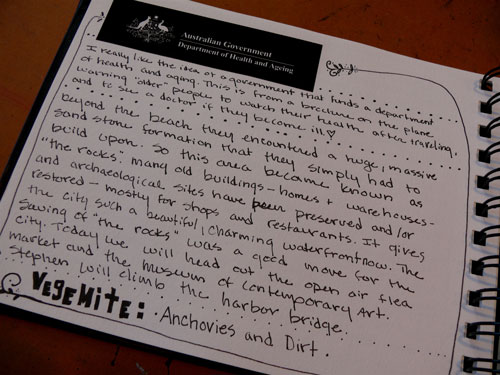 Australian Government
Department of Health and Ageing
I really like the idea of a government that funds a department
of health and aging. This is from a brochure on the plane
warning "older" people to watch their health after traveling,
and to see a doctor if they become ill.
beyond the beach they encountered a huge, massive
sandstone formation that they simply had to
build upon. So this area became known as
"the rocks." many old buildings - homes + warehouses -
and archaeological sites have been preserved and/or
restored - mostly for shops and restaurants. It gives
the city such a beautiful, charming waterfront now. The
saving of "the rocks" was a good move for the
city. Today we will head out the open air flea
market and the museum of Contemporary Art.
Stephen will climb the harbor bridge.
VEGEMITE: Anchovies and Dirt.